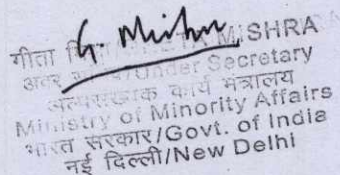 G. Mishra
गीता MISHRA
Under Secretary
अल्पसंख्यक कार्य मंत्रालय
Ministry of Minority Affairs
भारत सरकार/Govt. of India
नई दिल्ली/New Delhi